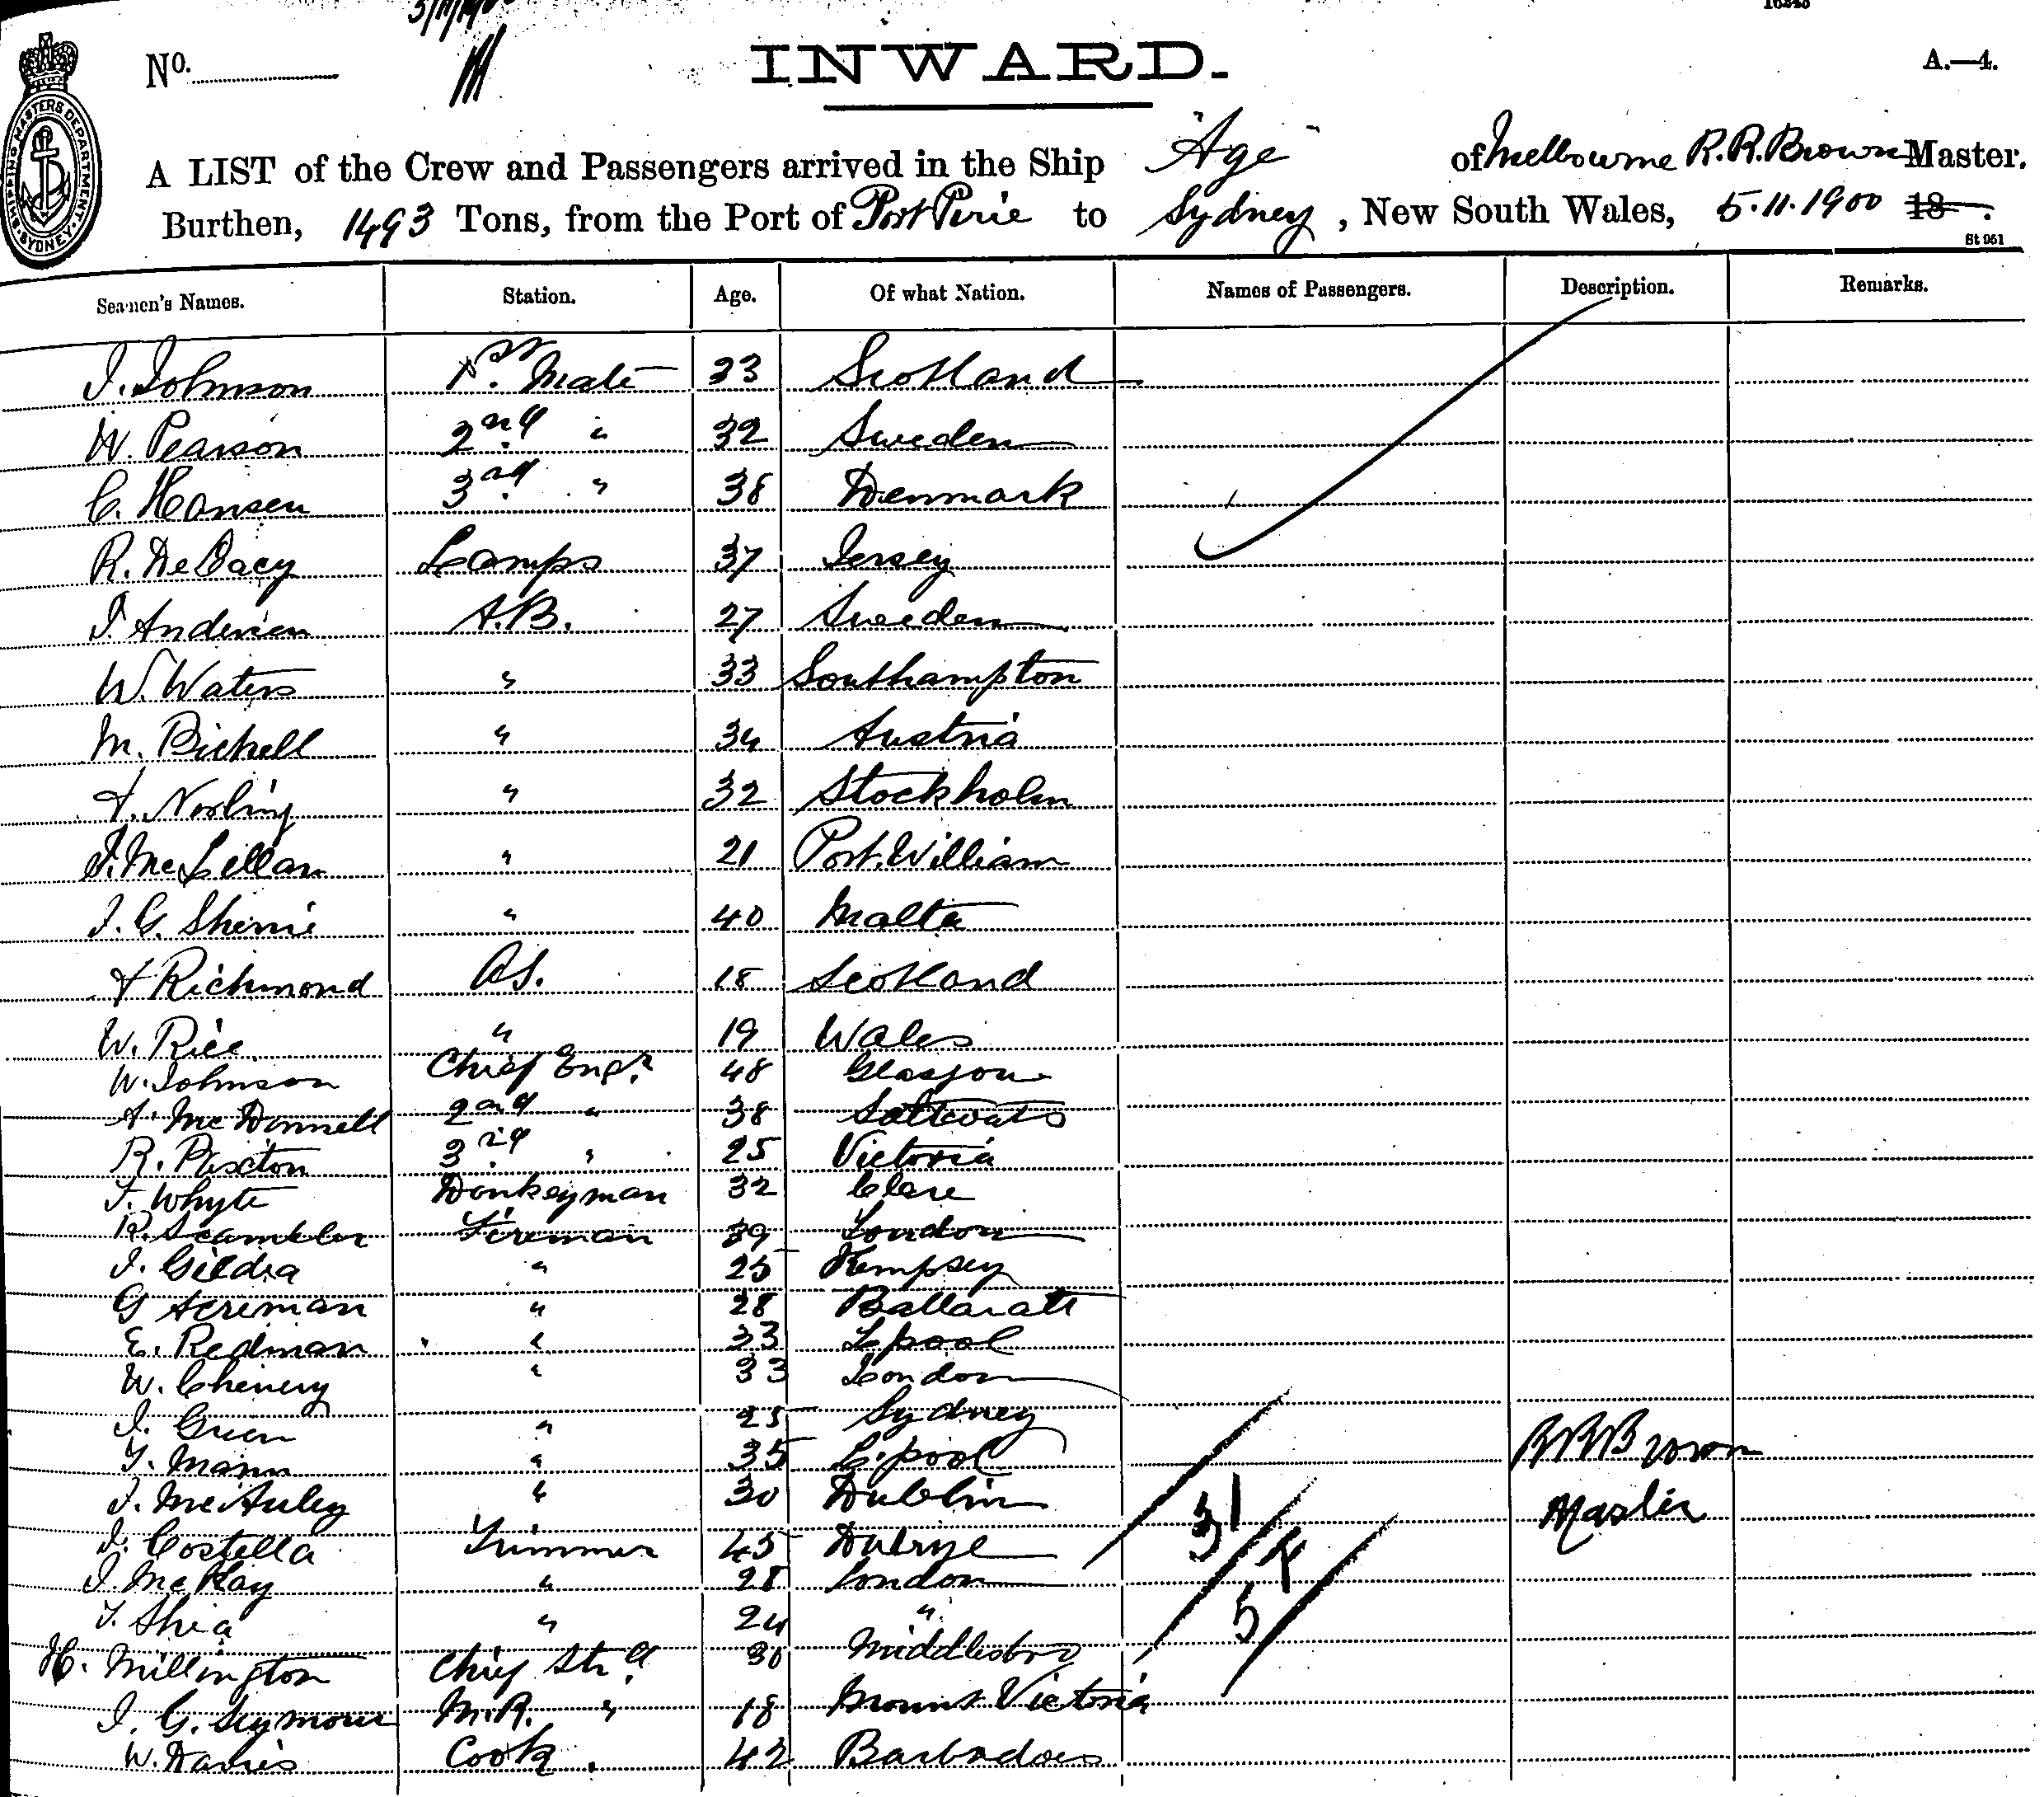 16243
5/11/1900
No.
INWARD.
A.—4.
SHIPPING MASTERS DEPARTMENT. SYDNEY.
A LIST of the Crew and Passengers arrived in the Ship "Age" of Melbourne R.R. Brown Master.
Burthen, 1493 Tons, from the Port of Port Pirie to Sydney, New South Wales, 5.11.1900 18 .
St 951
Seamen's Names. Station. Age. Of what Nation. Names of Passengers. Description. Remarks.
J. Johnson 1st. Mate 33 Scotland
W. Pearson 2nd " 32 Sweden
C. Hansen 3rd " 38 Denmark
R. De Lamps 37 Jersey
J. Andersen A.B. 27 Sweden
W. Waters " 33 Southampton
M. Bickell " 34 Austria
A. Norling " 32 Stockholm
J. McLellan " 21 Port. William
J. G. Sherrie " 40 Malta
A Richmond O.S. 18 Scotland
W. Rice " 19 Wales
W. Johnson Chief Engr. 48 Glasgow
A. McDonnell 2nd " 38 Saltcoats
R. Paxton 3rd " 25 Victoria
J. Whyte Donkeyman 32 Clare
R. Scambler Fireman 39 London
J. Gildea " 25 Kempsey
G Acreman " 28 Ballarat
E. Redman " 33 L'pool
W. Chenery " 33 London
J. Green " 25 Sydney
T. Mann " 35 L'pool RRBrown
J. McAuley " 30 Dublin 31 Master
J. Costella Trimmer 45 4
J. McKay " 28 London
T. Shea " 24 " 5
H. Millington Chief Std. 30 Middlesbro
J. G. Seymour M.R. " 18 Mount Victoria
W. Davies Cook. 42 Barbadoes